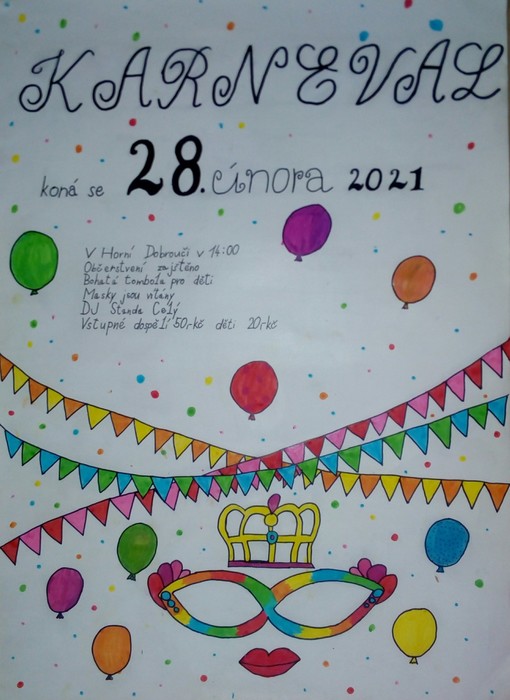 KARNEVAL
koná se 28. února 2021
V Horní Dobrouči v 14:00
Občerstvení zajištěno
Bohatá tombola pro děti
Masky jsou vítány
DJ Standa Celý
Vstupné dospělí 50,-kč děti 20,-kč